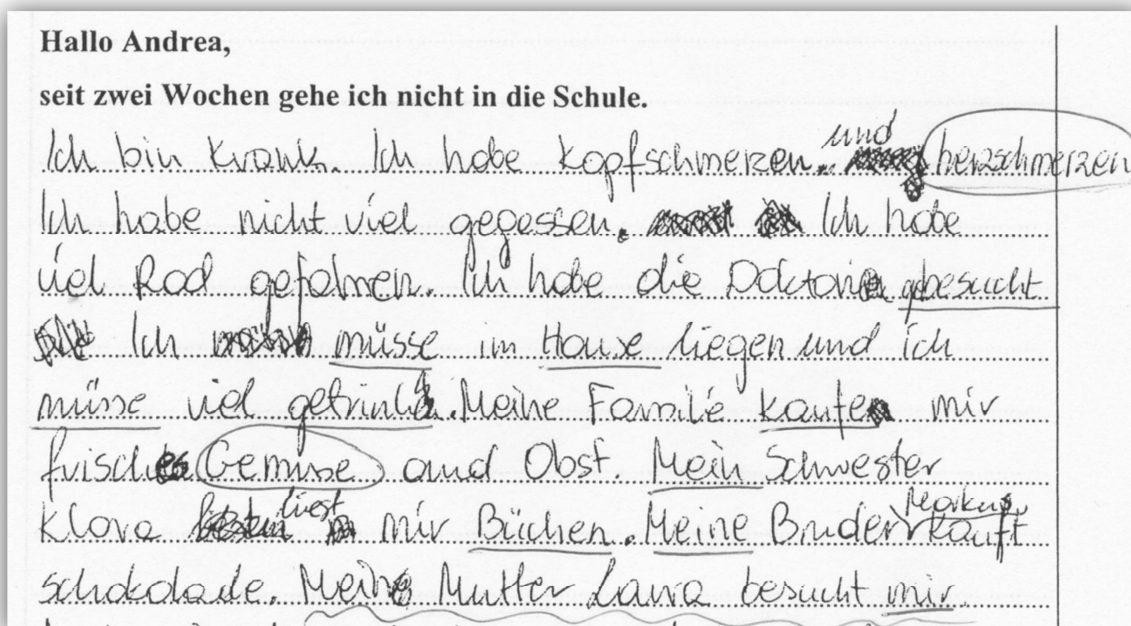 Hallo Andrea,
seit zwei Wochen gehe ich nicht in die Schule.
Ich bin krank. Ich habe Kopfschmerzen und herzschmerzen
Ich habe nicht viel gegessen. Ich habe
viel Rad gefahren. Ich habe die Doktorin gebesucht
Ich müsse im Hause liegen und ich
müsse viel getrinkt. Meine Familie kaufe mir
frisches Gemüse und Obst. Mein Schwester
Klara liest mir Büchen. Meine Bruder Markus kauft
schokolade. Meine Mutter Laura besucht mir